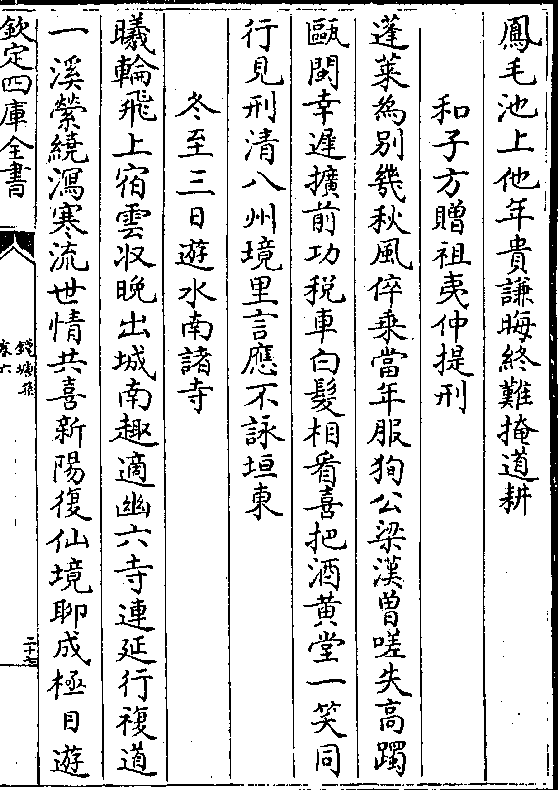 鳳毛池上他年貴謙晦終難掩道耕
和子方贈祖夷仲提刑
蓬萊為別幾秋風倅乘當年服狥公梁漢曽嗟失高躅
甌閩幸遲擴前功税車白髮相看喜把酒黄堂一笑同
行見刑清八州境里言應不詠垣東
冬至三日遊水南諸寺
曦輪飛上宿雲收晚出城南趣適幽六寺連延行複道
一溪縈繞瀉寒流世情共喜新陽復仙境聊成極目遊
欽定四庫全書
卷六
二十七